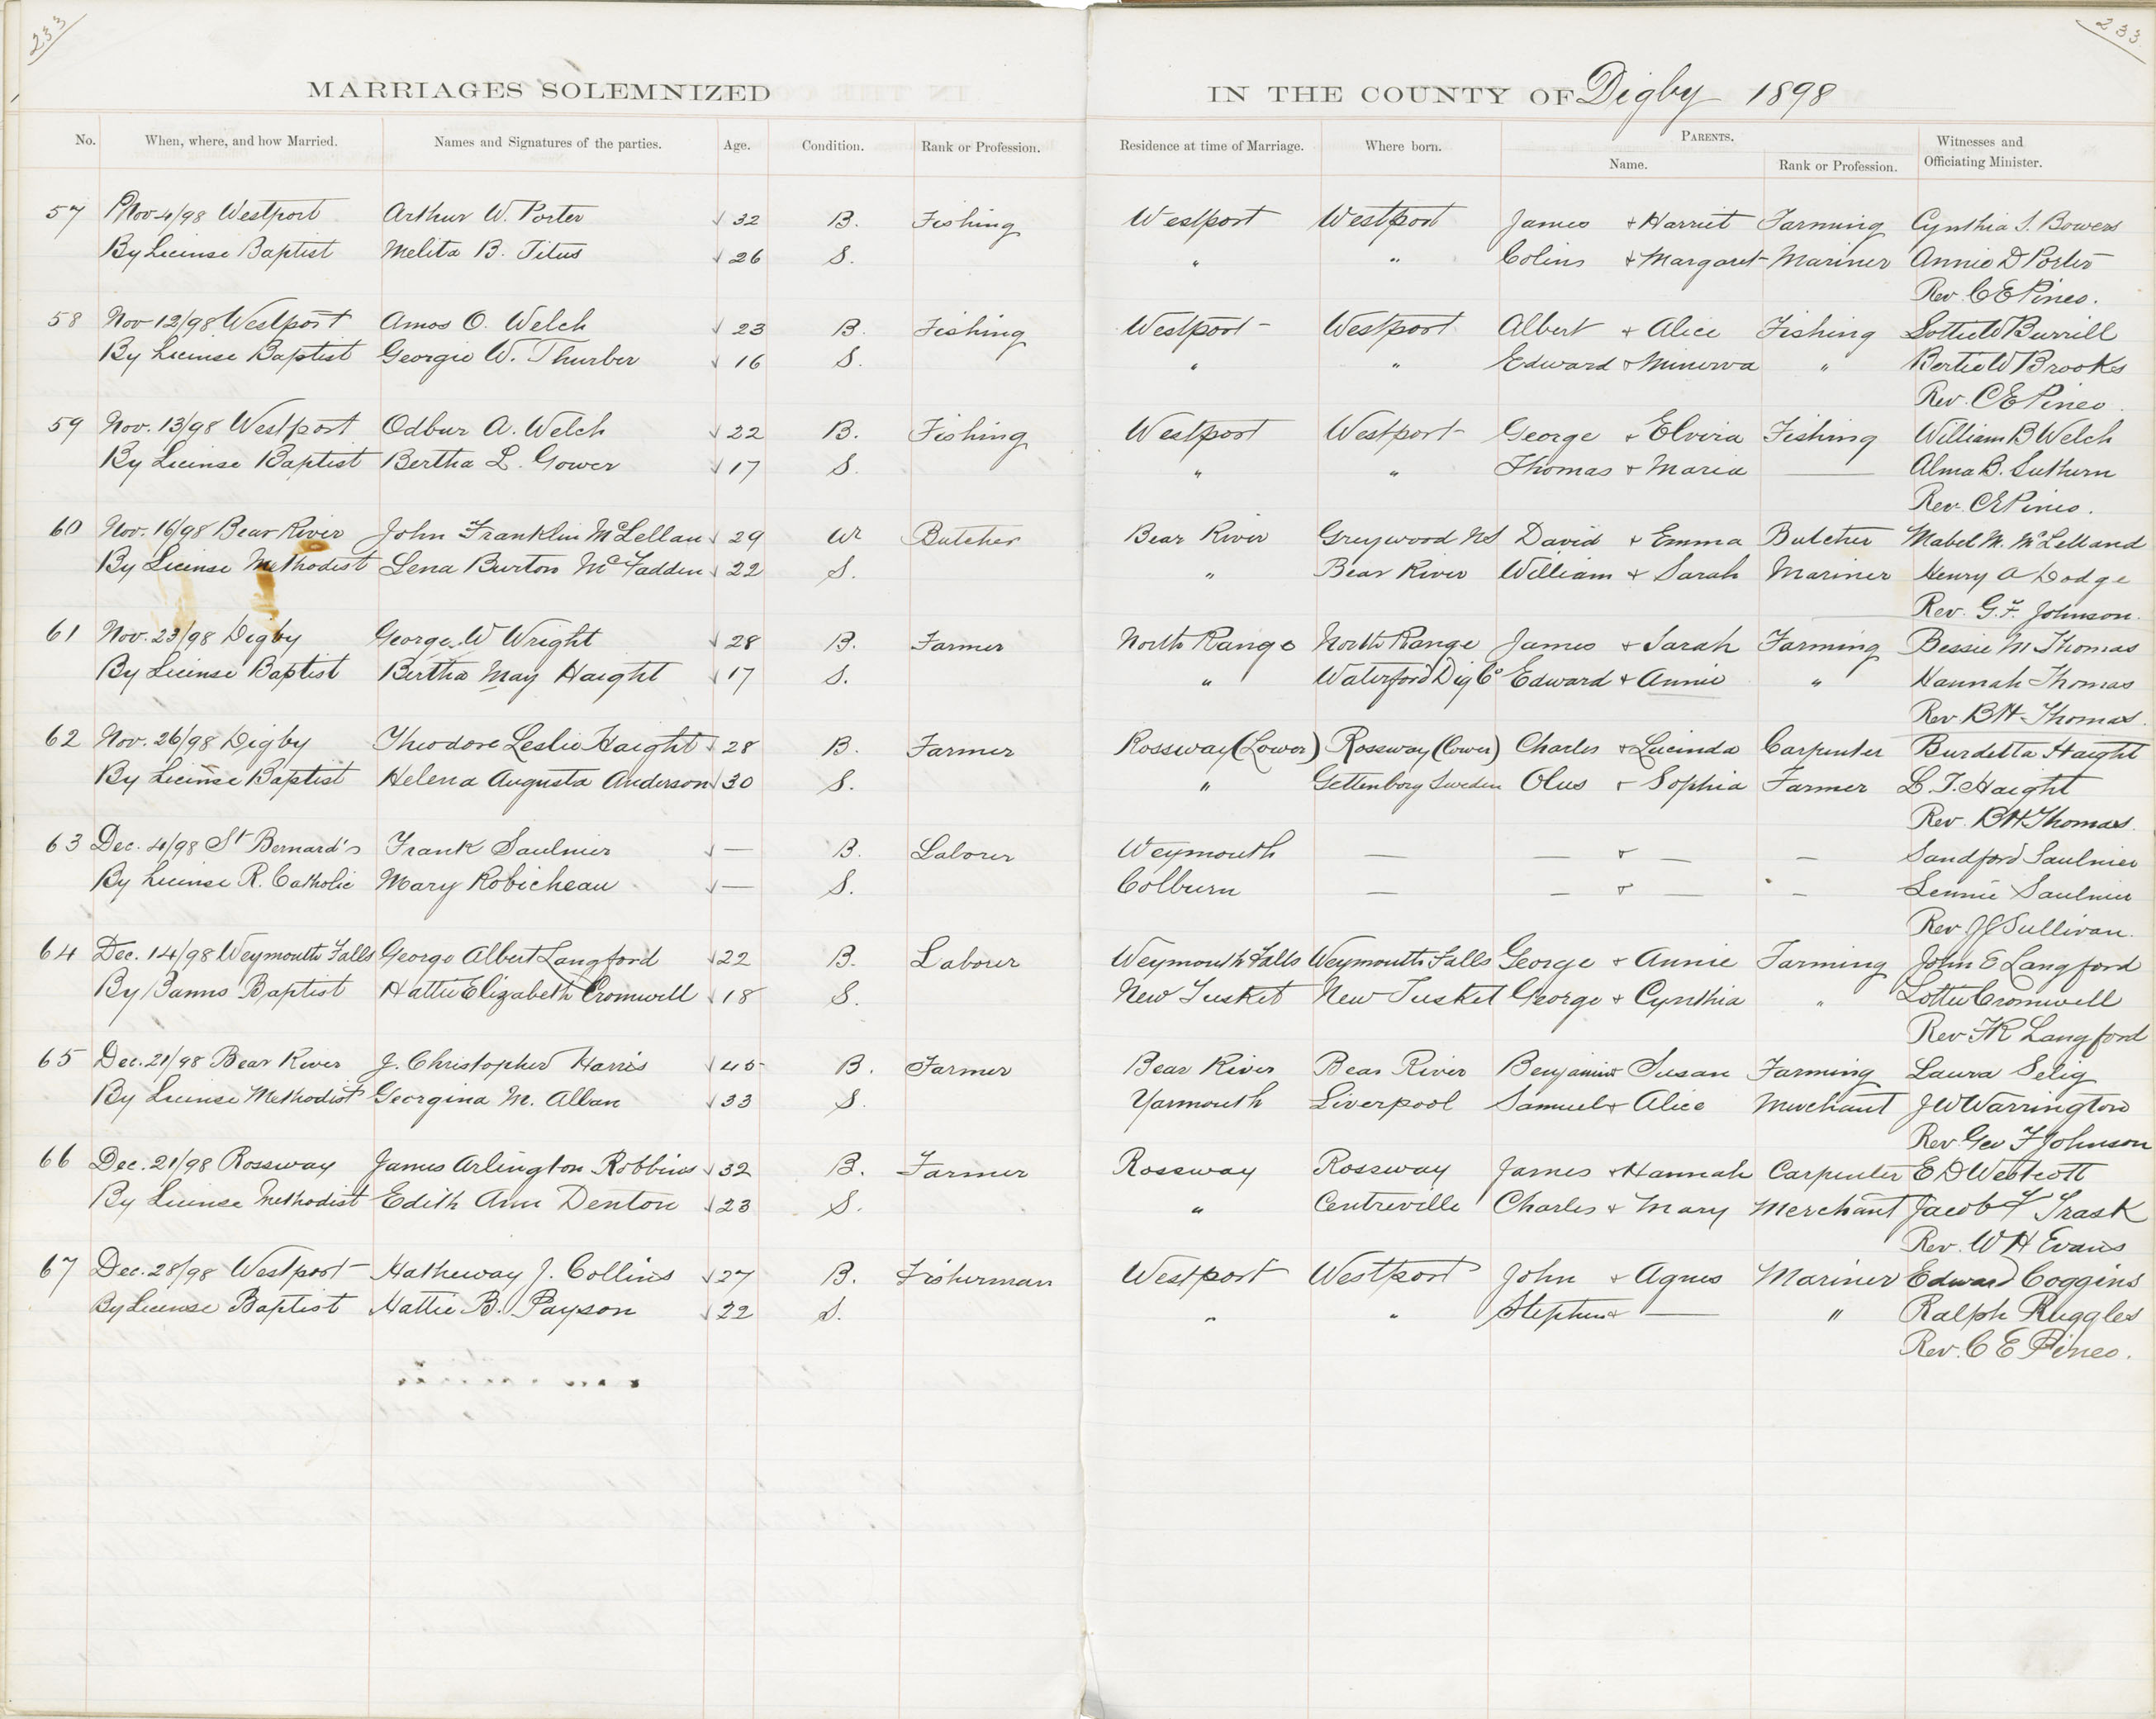 233
233
MARRIAGES SOLEMNIZED IN THE COUNTY OF Digby 1898
No. When, where, and how Married. Names and Signatures of the parties. Age. Condition. Rank or Profession. Residence at time of Marriage. Where born. PARENTS. Name. Rank or Profession. Witnesses and Officiating Minister.
57 Nov 4/98 Westport Arthur W. Porter √ 32 B. Fishing Westport Westport James + Harriet Farming Cynthia S. Bowers
By License Baptist Melita B. Titus √ 26 S. " " Colins + Margaret Mariner Annie D Porter
Rev. C E Pineo.
58 Nov 12/98 Westport Amos O. Welch √ 23 B. Fishing Westport Westport Albert + Alice Fishing Lottie W Burrill
By License Baptist Georgie W. Thurber √ 16 S. " " Edward + Minerva " Bertie W Brooks
Rev. C E Pineo.
59 Nov. 13/98 Westport Odbur A. Welch √ 22 B. Fishing Westport Westport George + Elvira Fishing William B Welch
By License Baptist Bertha L. Gower √ 17 S. " " Thomas + Maria — Alma B. Suthern
Rev. C E Pineo.
60 Nov. 16/98 Bear River John Franklin McLellan √ 29 Wr Butcher Bear River Greywood NS David + Emma Butcher Mabel M. McLelland
By License Methodist Lena Burton McFadden √ 22 S. " Bear River William + Sarah Mariner Henry A Dodge
Rev. G. F. Johnson.
61 Nov. 23/98 Digby George W Wright √ 28 B. Farmer North Range North Range James + Sarah Farming Bessie M Thomas
By License Baptist Bertha May Haight √ 17 S. " Waterford Dig Co Edward + Annie " Hannah Thomas
Rev B H Thomas.
62 Nov. 26/98 Digby Theodore Leslie Haight √ 28 B. Farmer Rossway (Lower) Rossway (Lower) Charles + Lucinda Carpenter Burdetta Haight
By License Baptist Helena Augusta Anderson √ 30 S. " Gettenborg Sweden Olus + Sophia Farmer L. T. Haight
Rev. B H Thomas.
63 Dec. 4/98 St Bernard's Frank Saulnier √ — B. Laborer Weymouth — — + — — Sandford Saulnier
By License R. Catholic Mary Robicheau √ — S. Colburn — — + — — Lennie Saulnier
Rev J J Sullivan.
64 Dec. 14/98 Weymouth Falls George Albert Langford √ 22 B. Laborer Weymouth Falls Weymouth Falls George + Annie Farming John E Langford
By Banns Baptist Hattie Elizabeth Cromwell √ 18 S. New Tusket New Tusket George + Cynthia " Lottie Cromwell
Rev F R Langford
65 Dec. 21/98 Bear River J. Christopher Harris √ 45 B. Farmer Bear River Bear River Benjamin + Susan Farming Laura Selig
By License Methodist Georgina M. Allan √ 33 S. Yarmouth Liverpool Samuel + Alice Merchant J W Warrington
Rev Geo F Johnson
66 Dec. 21/98 Rossway James Arlington Robbins √ 32 B. Farmer Rossway Rossway James + Hannah Carpenter E D Westcott
By License Methodist Edith Ann Denton √ 23 S. " Centreville Charles + Mary Merchant Jacob F Trask
Rev. W H Evans
67 Dec. 28/98 Westport Hatheway J. Collins √ 27 B. Fisherman Westport Westport John + Agnes Mariner Edward Coggins
By License Baptist Hattie B. Payson √ 22 S. " " Stephen + — " Ralph Ruggles
Rev. C E Pineo.